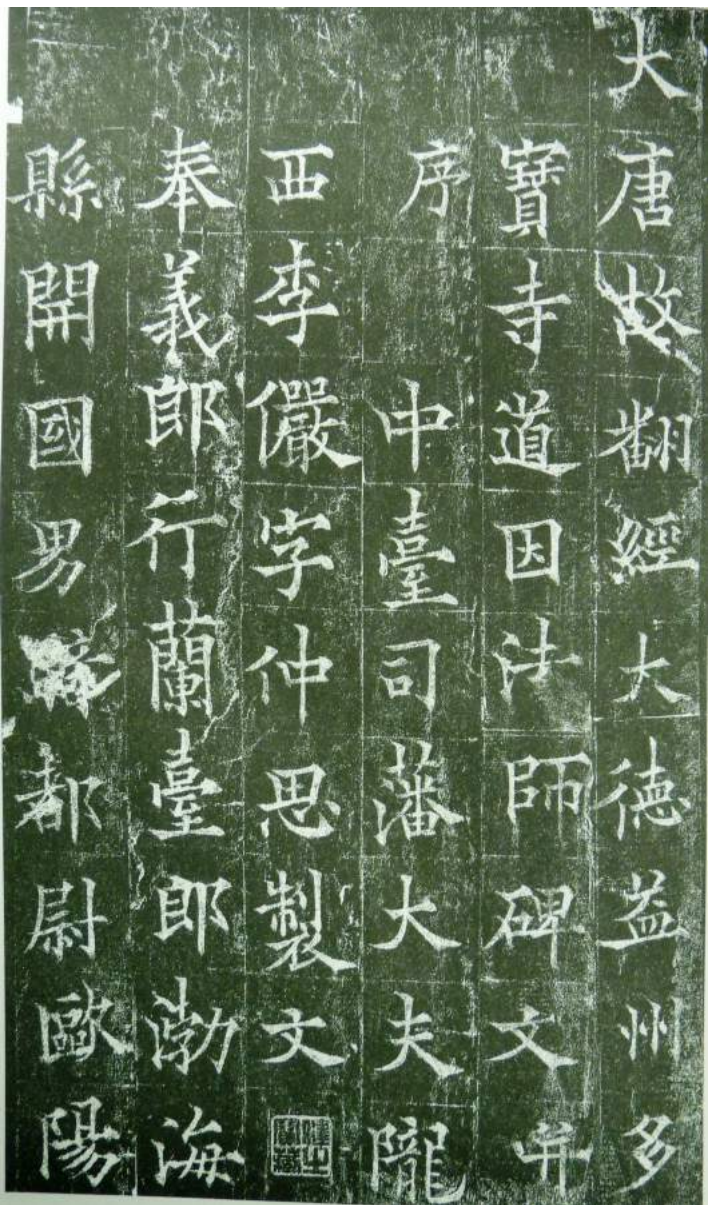 大唐故翻經大德益州多
寶寺道因法師碑文并
序 中臺司藩大夫隴
西李儼字仲思製文
奉義郎行蘭臺郎渤海
縣開國男 都尉歐陽